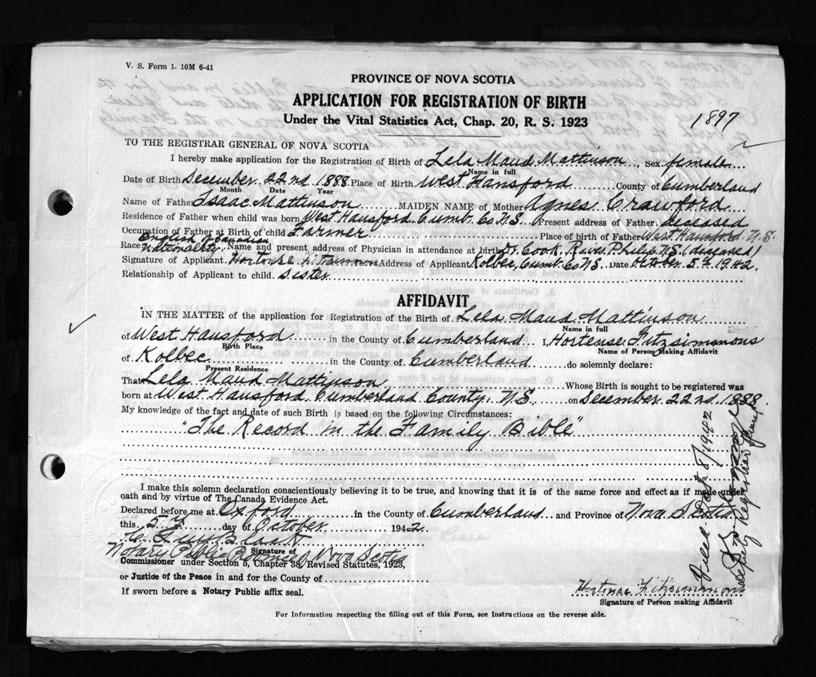 V. S. Form 1. 10M 6-41
PROVINCE OF NOVA SCOTIA
APPLICATION FOR REGISTRATION OF BIRTH
Under the Vital Statistics Act, Chap. 20, R. S. 1923
1897
TO THE REGISTRAR GENERAL OF NOVA SCOTIA
I hereby make application for the Registration of Birth of Lela Maud Mattinson, Sex female
Name in full
Date of Birth December 22nd 1888 Place of Birth West Hansford County of Cumberland
Month Date Year
Name of Father Isaac Mattinson MAIDEN NAME of Mother Agnes Crawford
Residence of Father when child was born West Hansford Cumb. Co N.S. Present address of Father deceased
Occupation of Father at Birth of child Farmer Place of birth of Father West Hansford N.S.
English Canadian
Race Nationality Name and present address of Physician in attendance at birth Dr. Cook, River Philip N.S. (deceased)
Signature of Applicant Hortense Fitzsimmons Address of Applicant Kolbec, Cumb. Co N.S. Date October 5th 1942.
Relationship of Applicant to child Sister
AFFIDAVIT
IN THE MATTER of the application for Registration of the Birth of Lela Maud Mattinson
Name in full
of West Hansford in the County of Cumberland I, Hortense Fitzsimmons
Birth Place Name of Person Making Affidavit
of Kolbec in the County of Cumberland do solemnly declare:
Present Residence
That Lela Maud Mattinson Whose Birth is sought to be registered was
born at West Hansford, Cumberland County, N.S. on December 22nd 1888
My knowledge of the fact and date of such Birth is based on the following Circumstances:
"The Record in the Family Bible"
I make this solemn declaration conscientiously believing it to be true, and knowing that it is of the same force and effect as if made under
oath and by virtue of The Canada Evidence Act.
Declared before me at Oxford in the County of Cumberland and Province of Nova Scotia
this 5th day of October 1942.
Signature of
Notary Public Province Nova Scotia
Commissioner under Section 5, Chapter 38, Revised Statutes, 1923,
or Justice of the Peace in and for the County of
If sworn before a Notary Public affix seal.
Hortense Fitzsimmons
Signature of Person making Affidavit
For Information respecting the filling out of this Form, see Instructions on the reverse side.
Filed Oct 8/1942
Deputy Registrar General